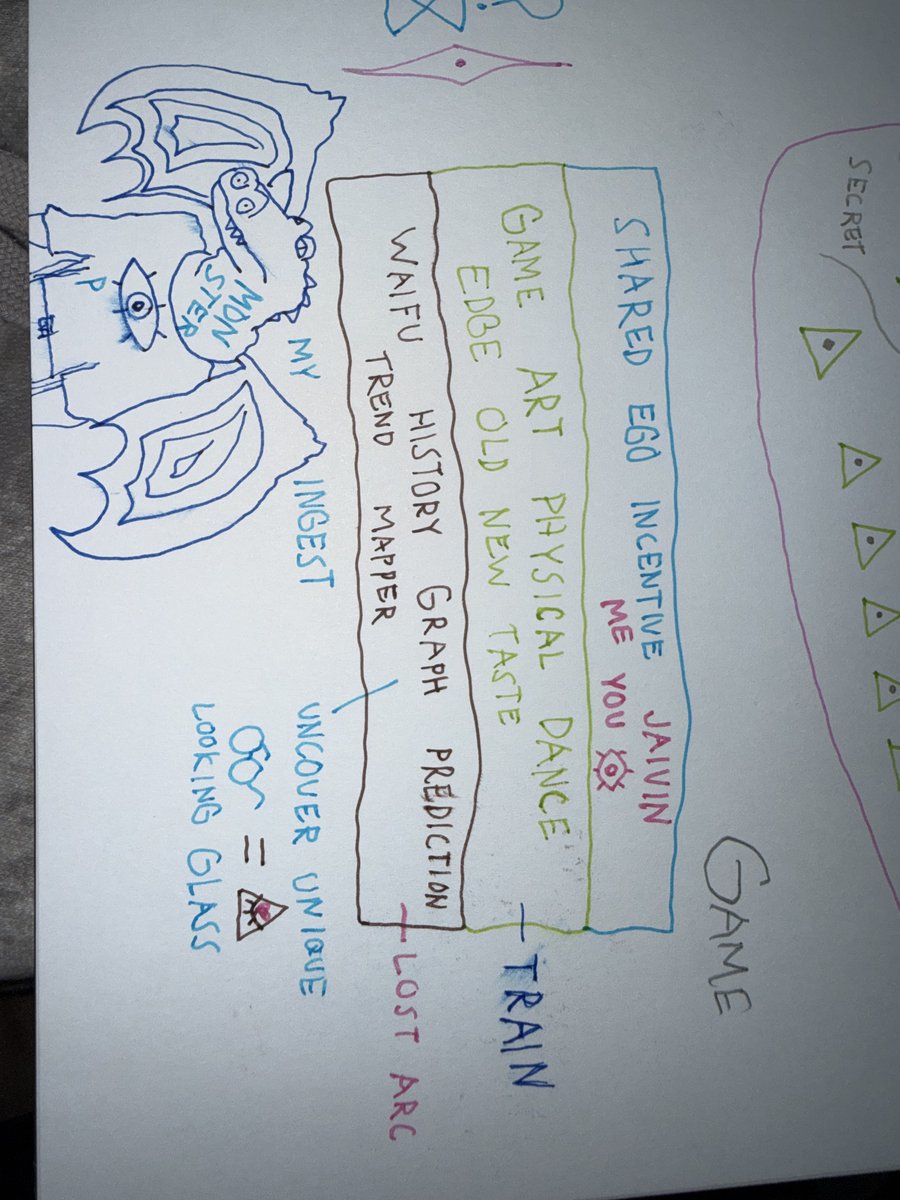 SECRET
GAME
SHARED EGO INCENTIVE JAIVIN
ME YOU
GAME ART PHYSICAL DANCE
EDGE OLD NEW TASTE
— TRAIN
WAIFU HISTORY GRAPH PREDICTION
TREND MAPPER
— LOST ARC
MY INGEST
UNCOVER UNIQUE
=
LOOKING GLASS
MON
STER
P
?